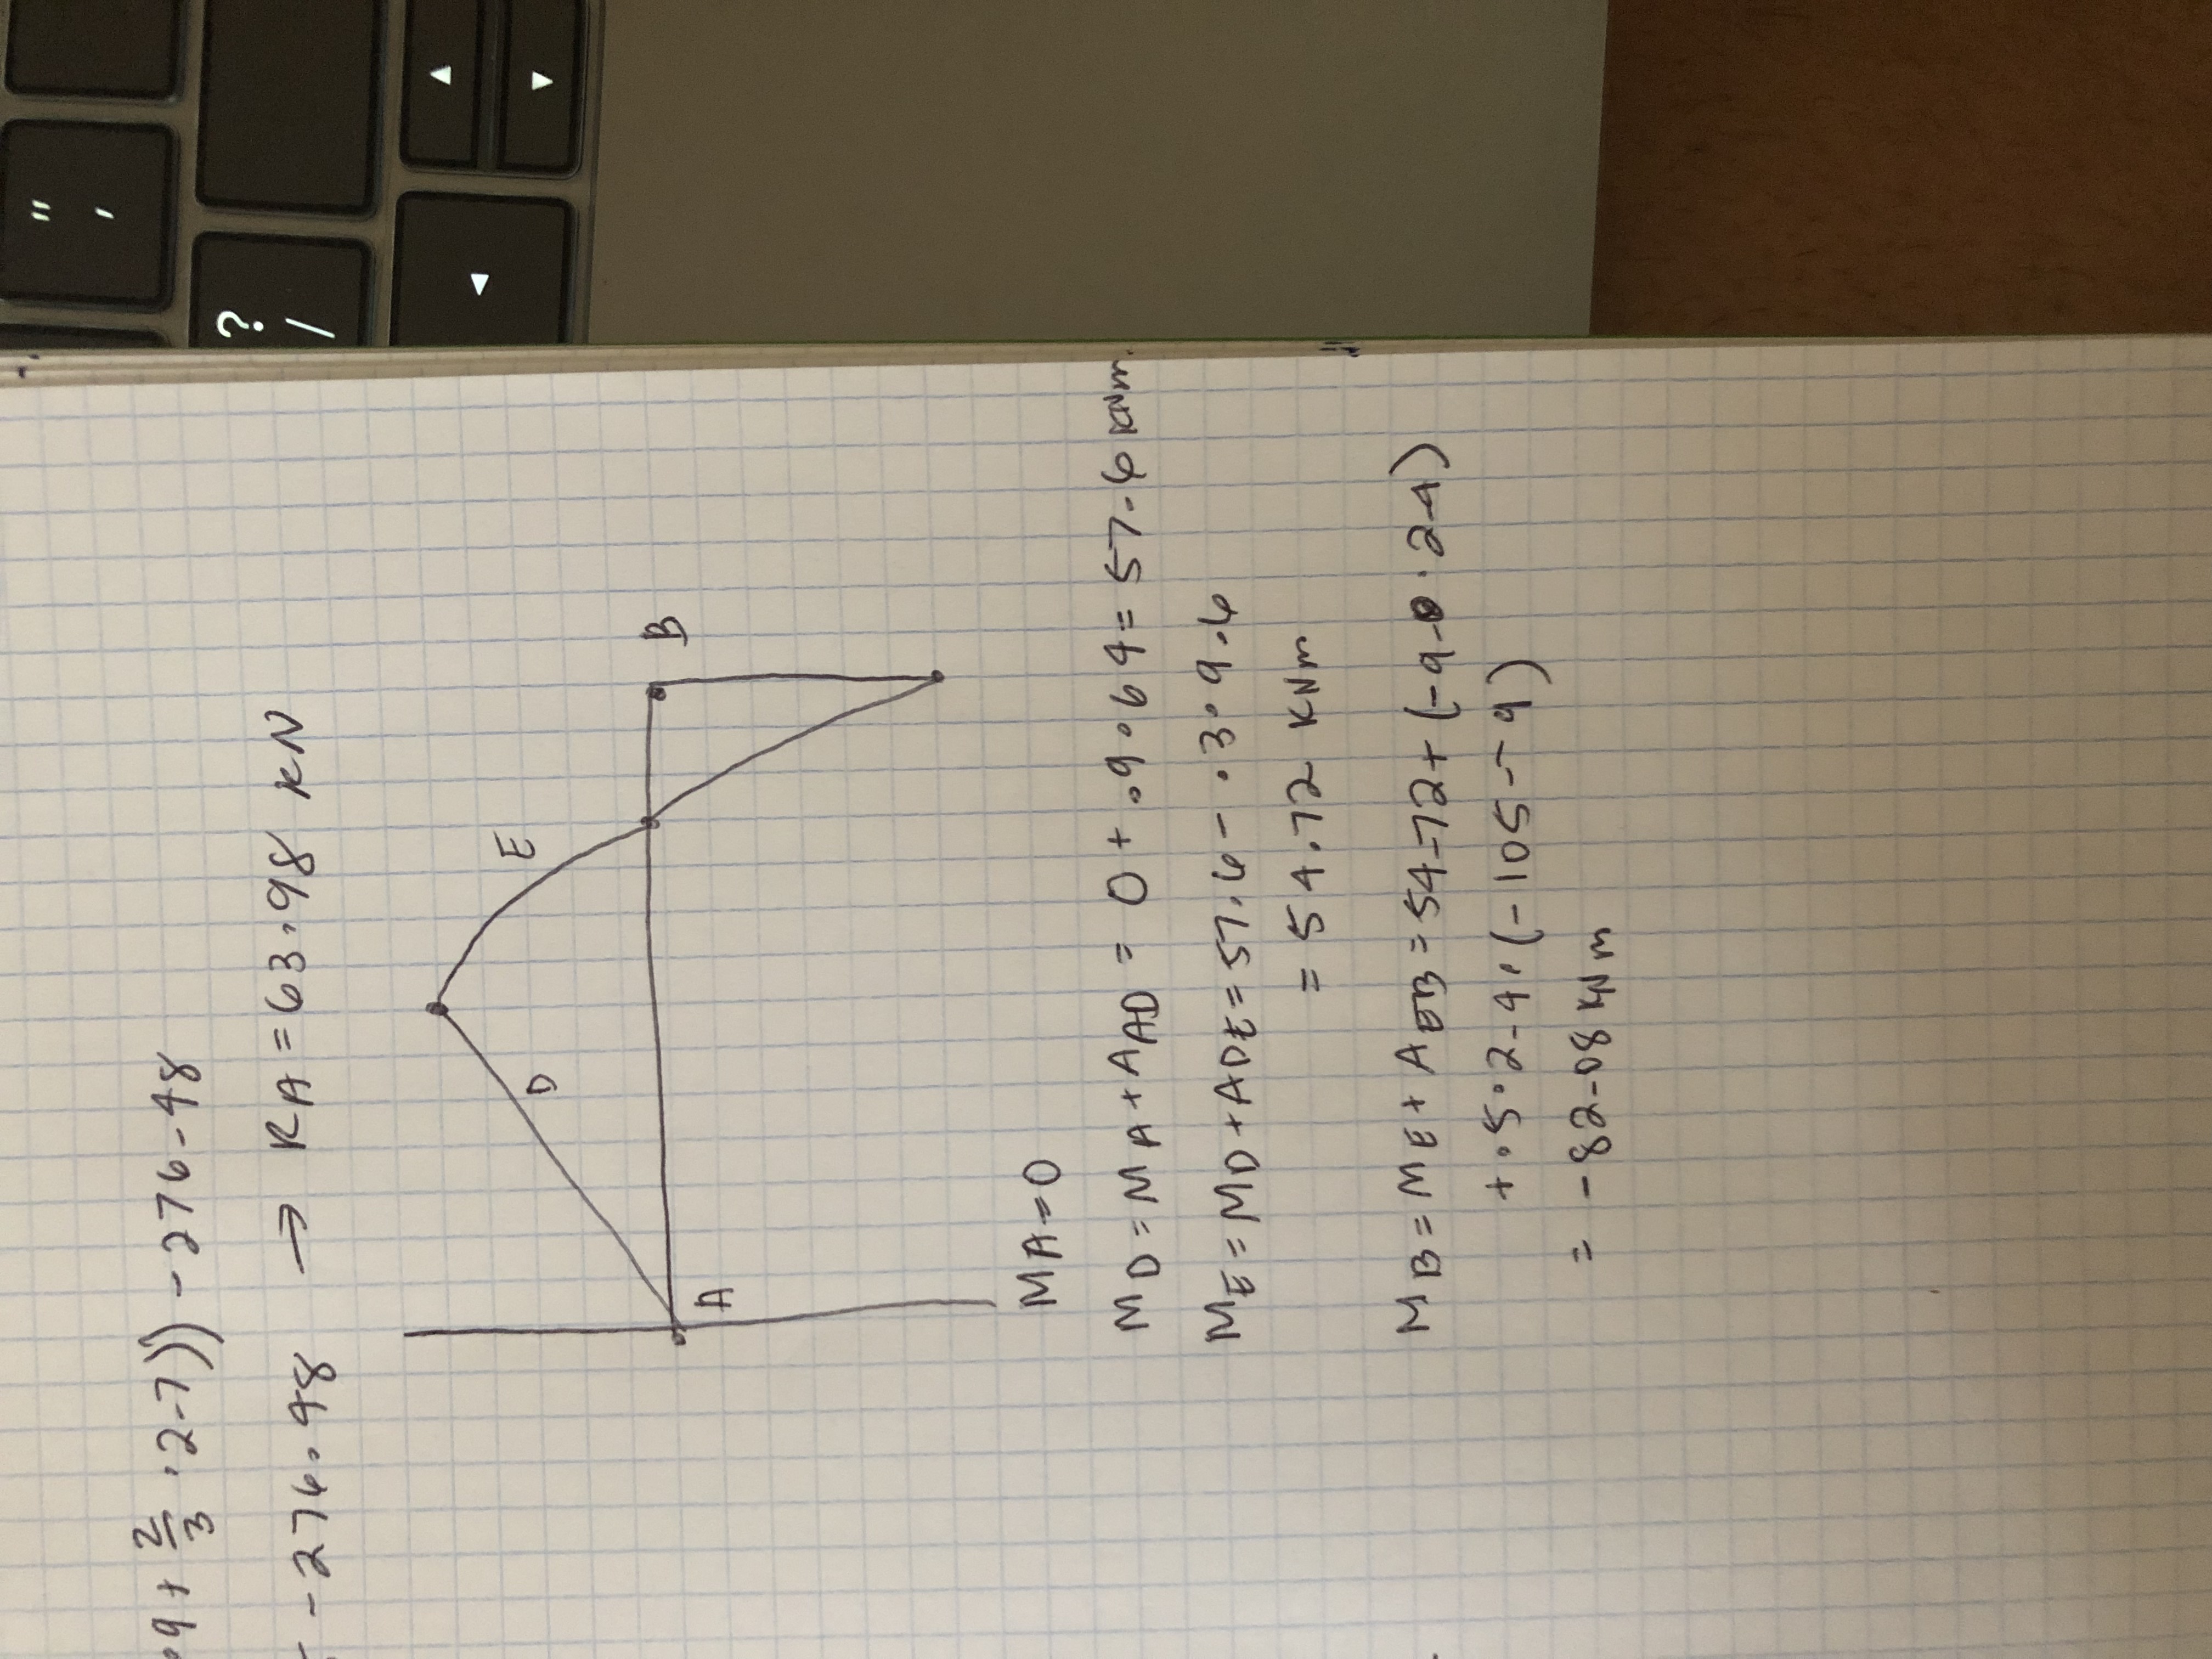 ·9+ 2/3 ·2-7)) -276-48
= -276.48 → RA=63.98 KN
D
E
B
A
MA=0
MD=MA+AAD = 0+ .9·64= 57.6 KNm.
ME=MD+ADE=57.6- .3·9.6
= 54.72 KNm
MB=ME+AEB=54-72+(-9- ·2-4)
+.5·2-4·(-105--9)
= -82-08 KNm
"
'
?
/
◄
▲
▼